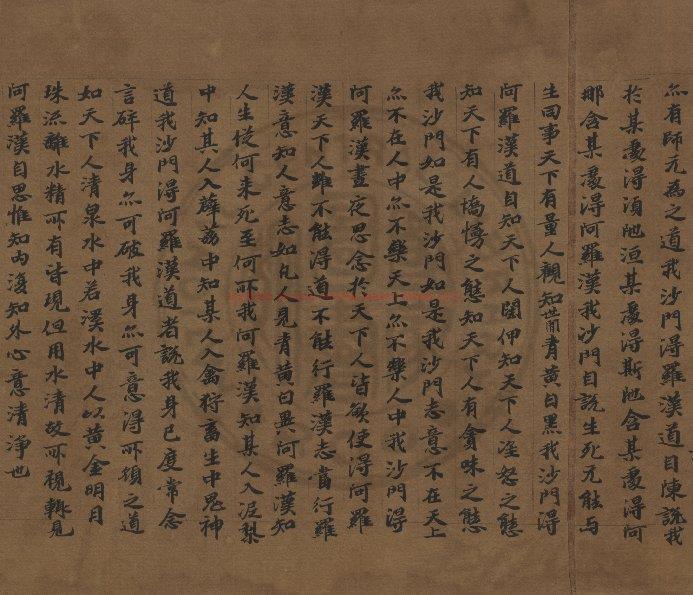 尒有師无為之道我沙門得羅漢道自陳說我
於某處得湏陁洹某處得斯陁含某處得阿
那含某處得阿羅漢我沙門自說生死无能与
生回事天下有量人觀知世間青黃白黑我沙門得
阿羅漢道自知天下人閑伊知天下人淫怒之態
知天下有人憍慢之態知天下人有貪味之態
我沙門如是我沙門如是我沙門志意不在天上
尒不在人中尒不樂天上尒不樂人中我沙門得
阿羅漢晝夜思念於天下人皆欲使得阿羅
漢天下人雖不能得道不能行羅漢志當行羅
漢意知人意志如凡人見青黃白異阿羅漢知
人生從何来死至何所我阿羅漢知某人入泥犁
中知某人入薜荔中知某人入禽狩畜生中鬼神
道我沙門得阿羅漢道者說我身已度常念
言碎我身尒可破我身尒可意得所順之道
如天下人清泉水中若溪水中人以黃金明月
珠沉離水精所有皆現但用水清故所視輙見
阿羅漢自思惟知內復知外心意清淨也